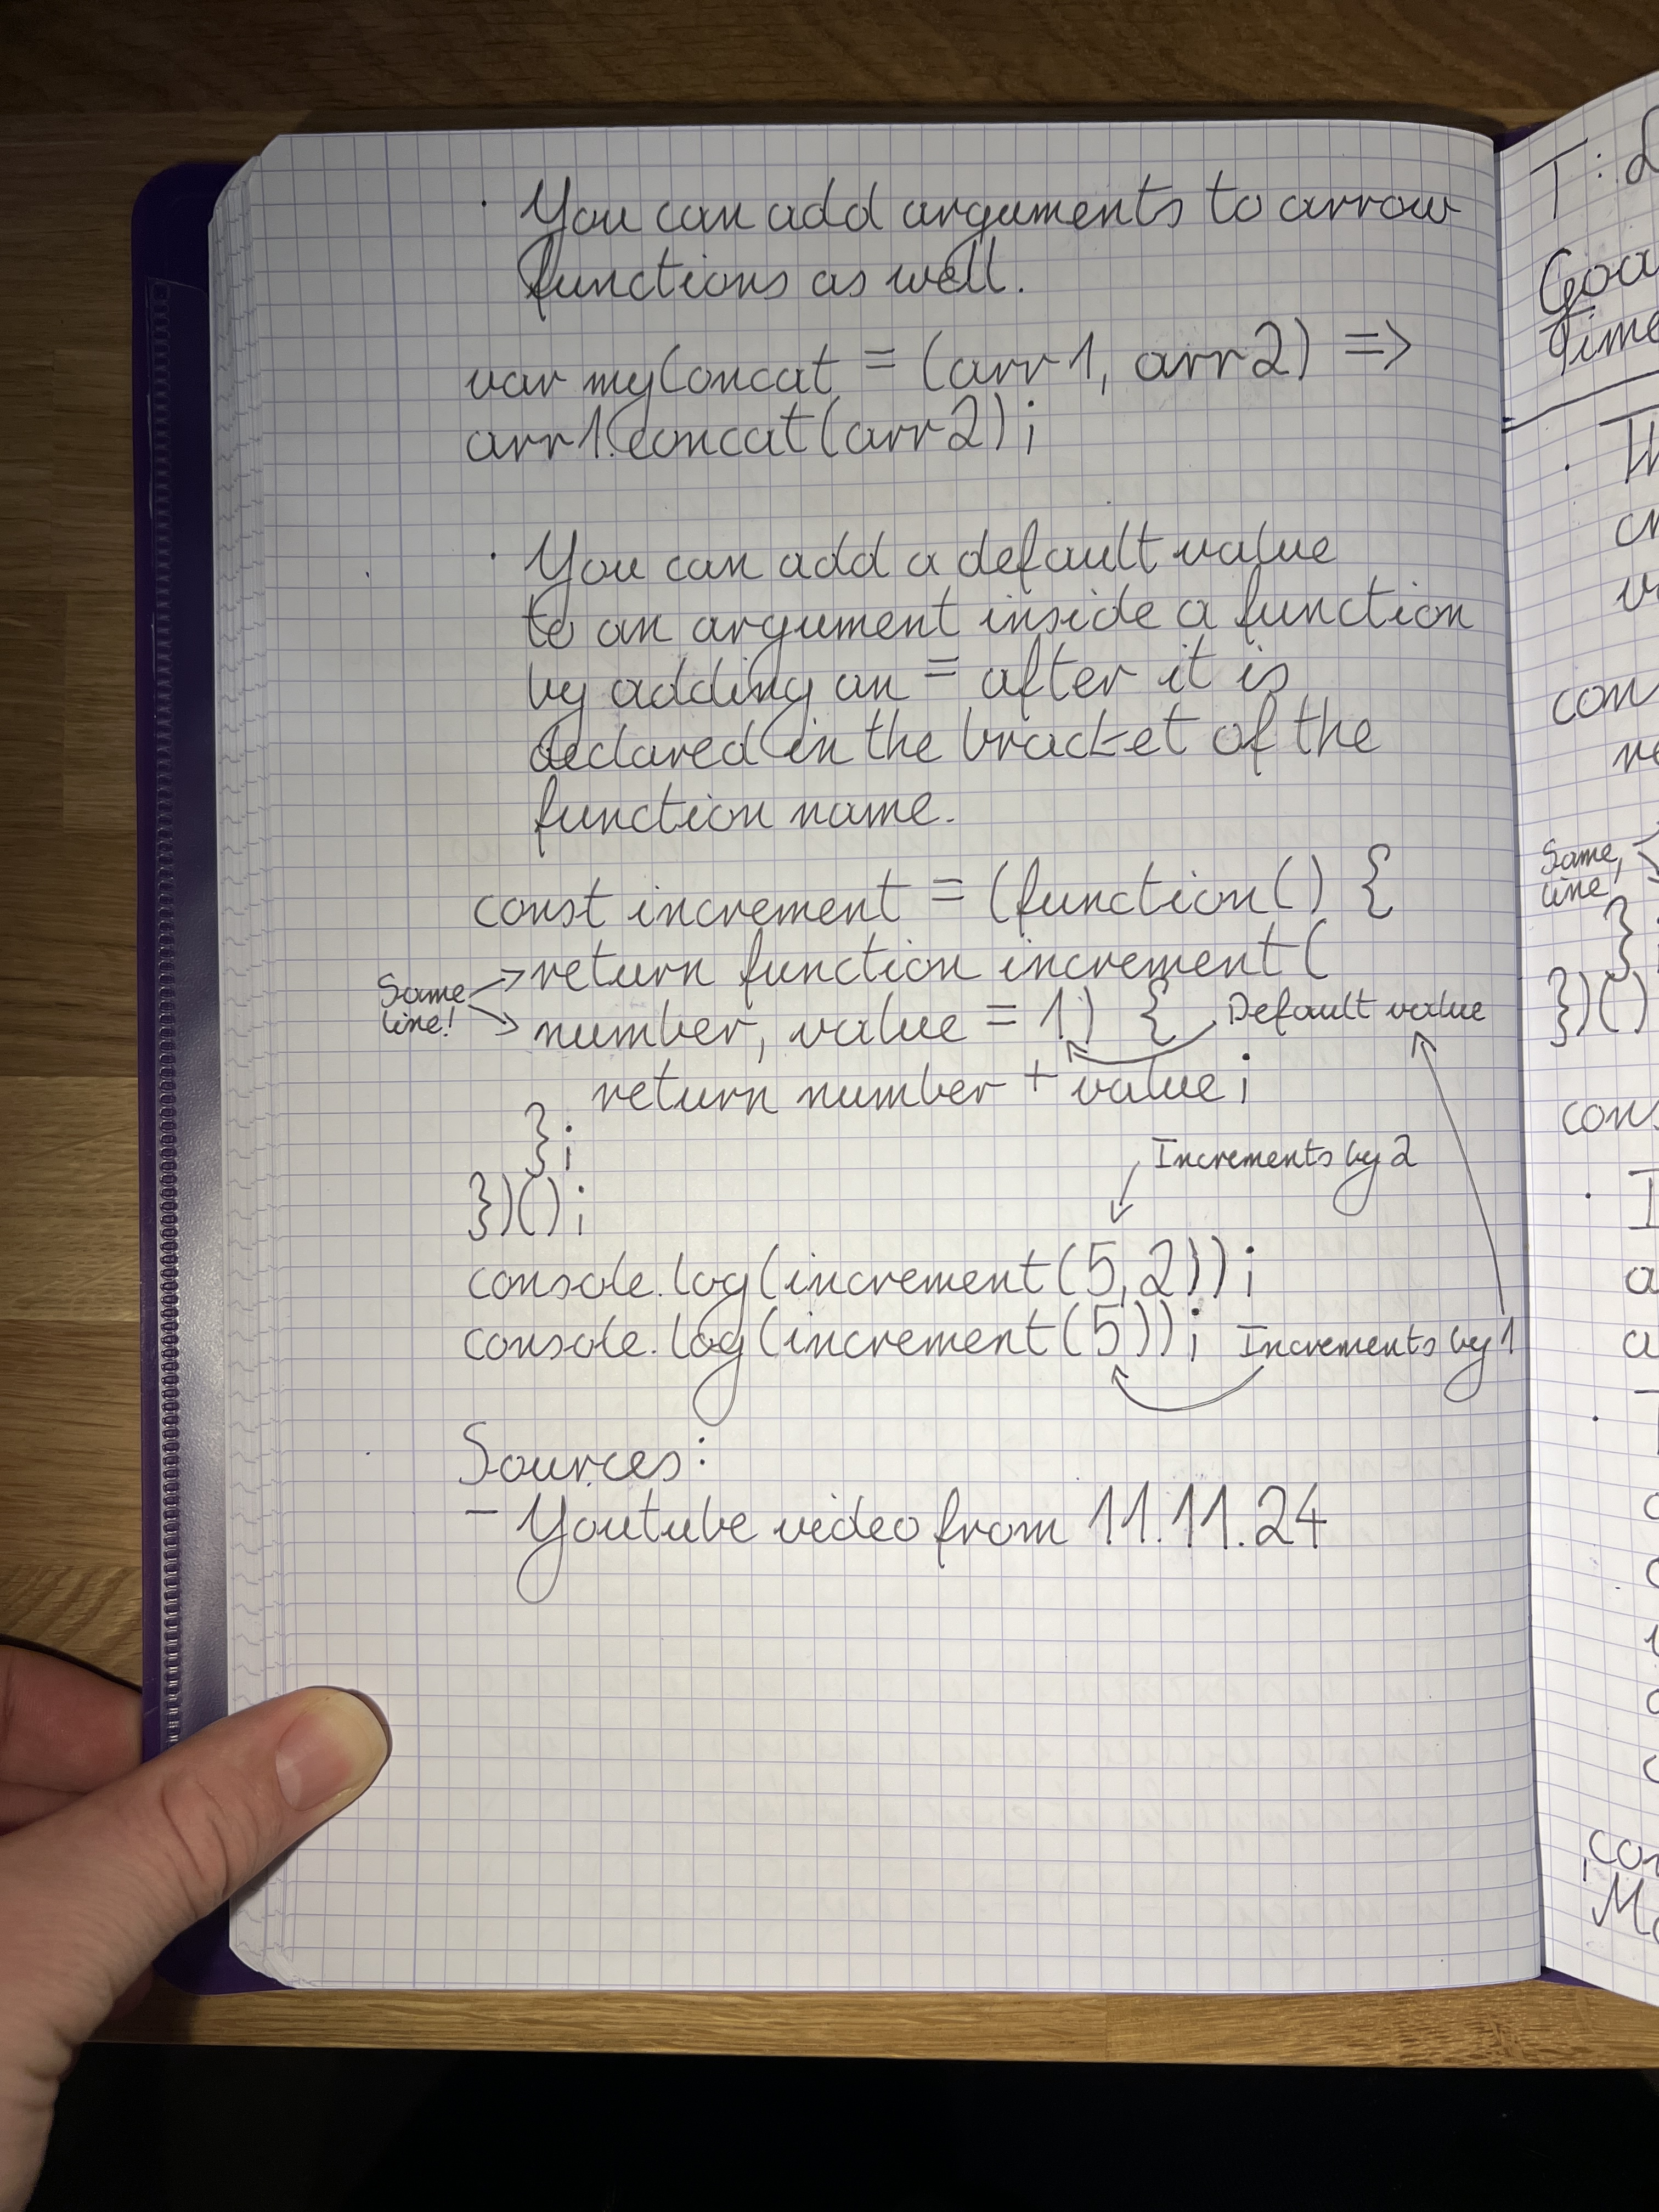 · You can add arguments to arrow
functions as well.
var myConcat = (arr1, arr2) =>
arr1.concat(arr2);
· You can add a default value
to an argument inside a function
by adding an = after it is
declared in the bracket of the
function name.
const increment = (function() {
return function increment(
Same line!
number, value = 1) { Default value
return number + value;
};
Increments by 2
})();
console.log(increment(5,2));
console.log(increment(5)); Increments by 1
Sources:
- Youtube video from 11.11.24
T:
Same,
line!
};
})()